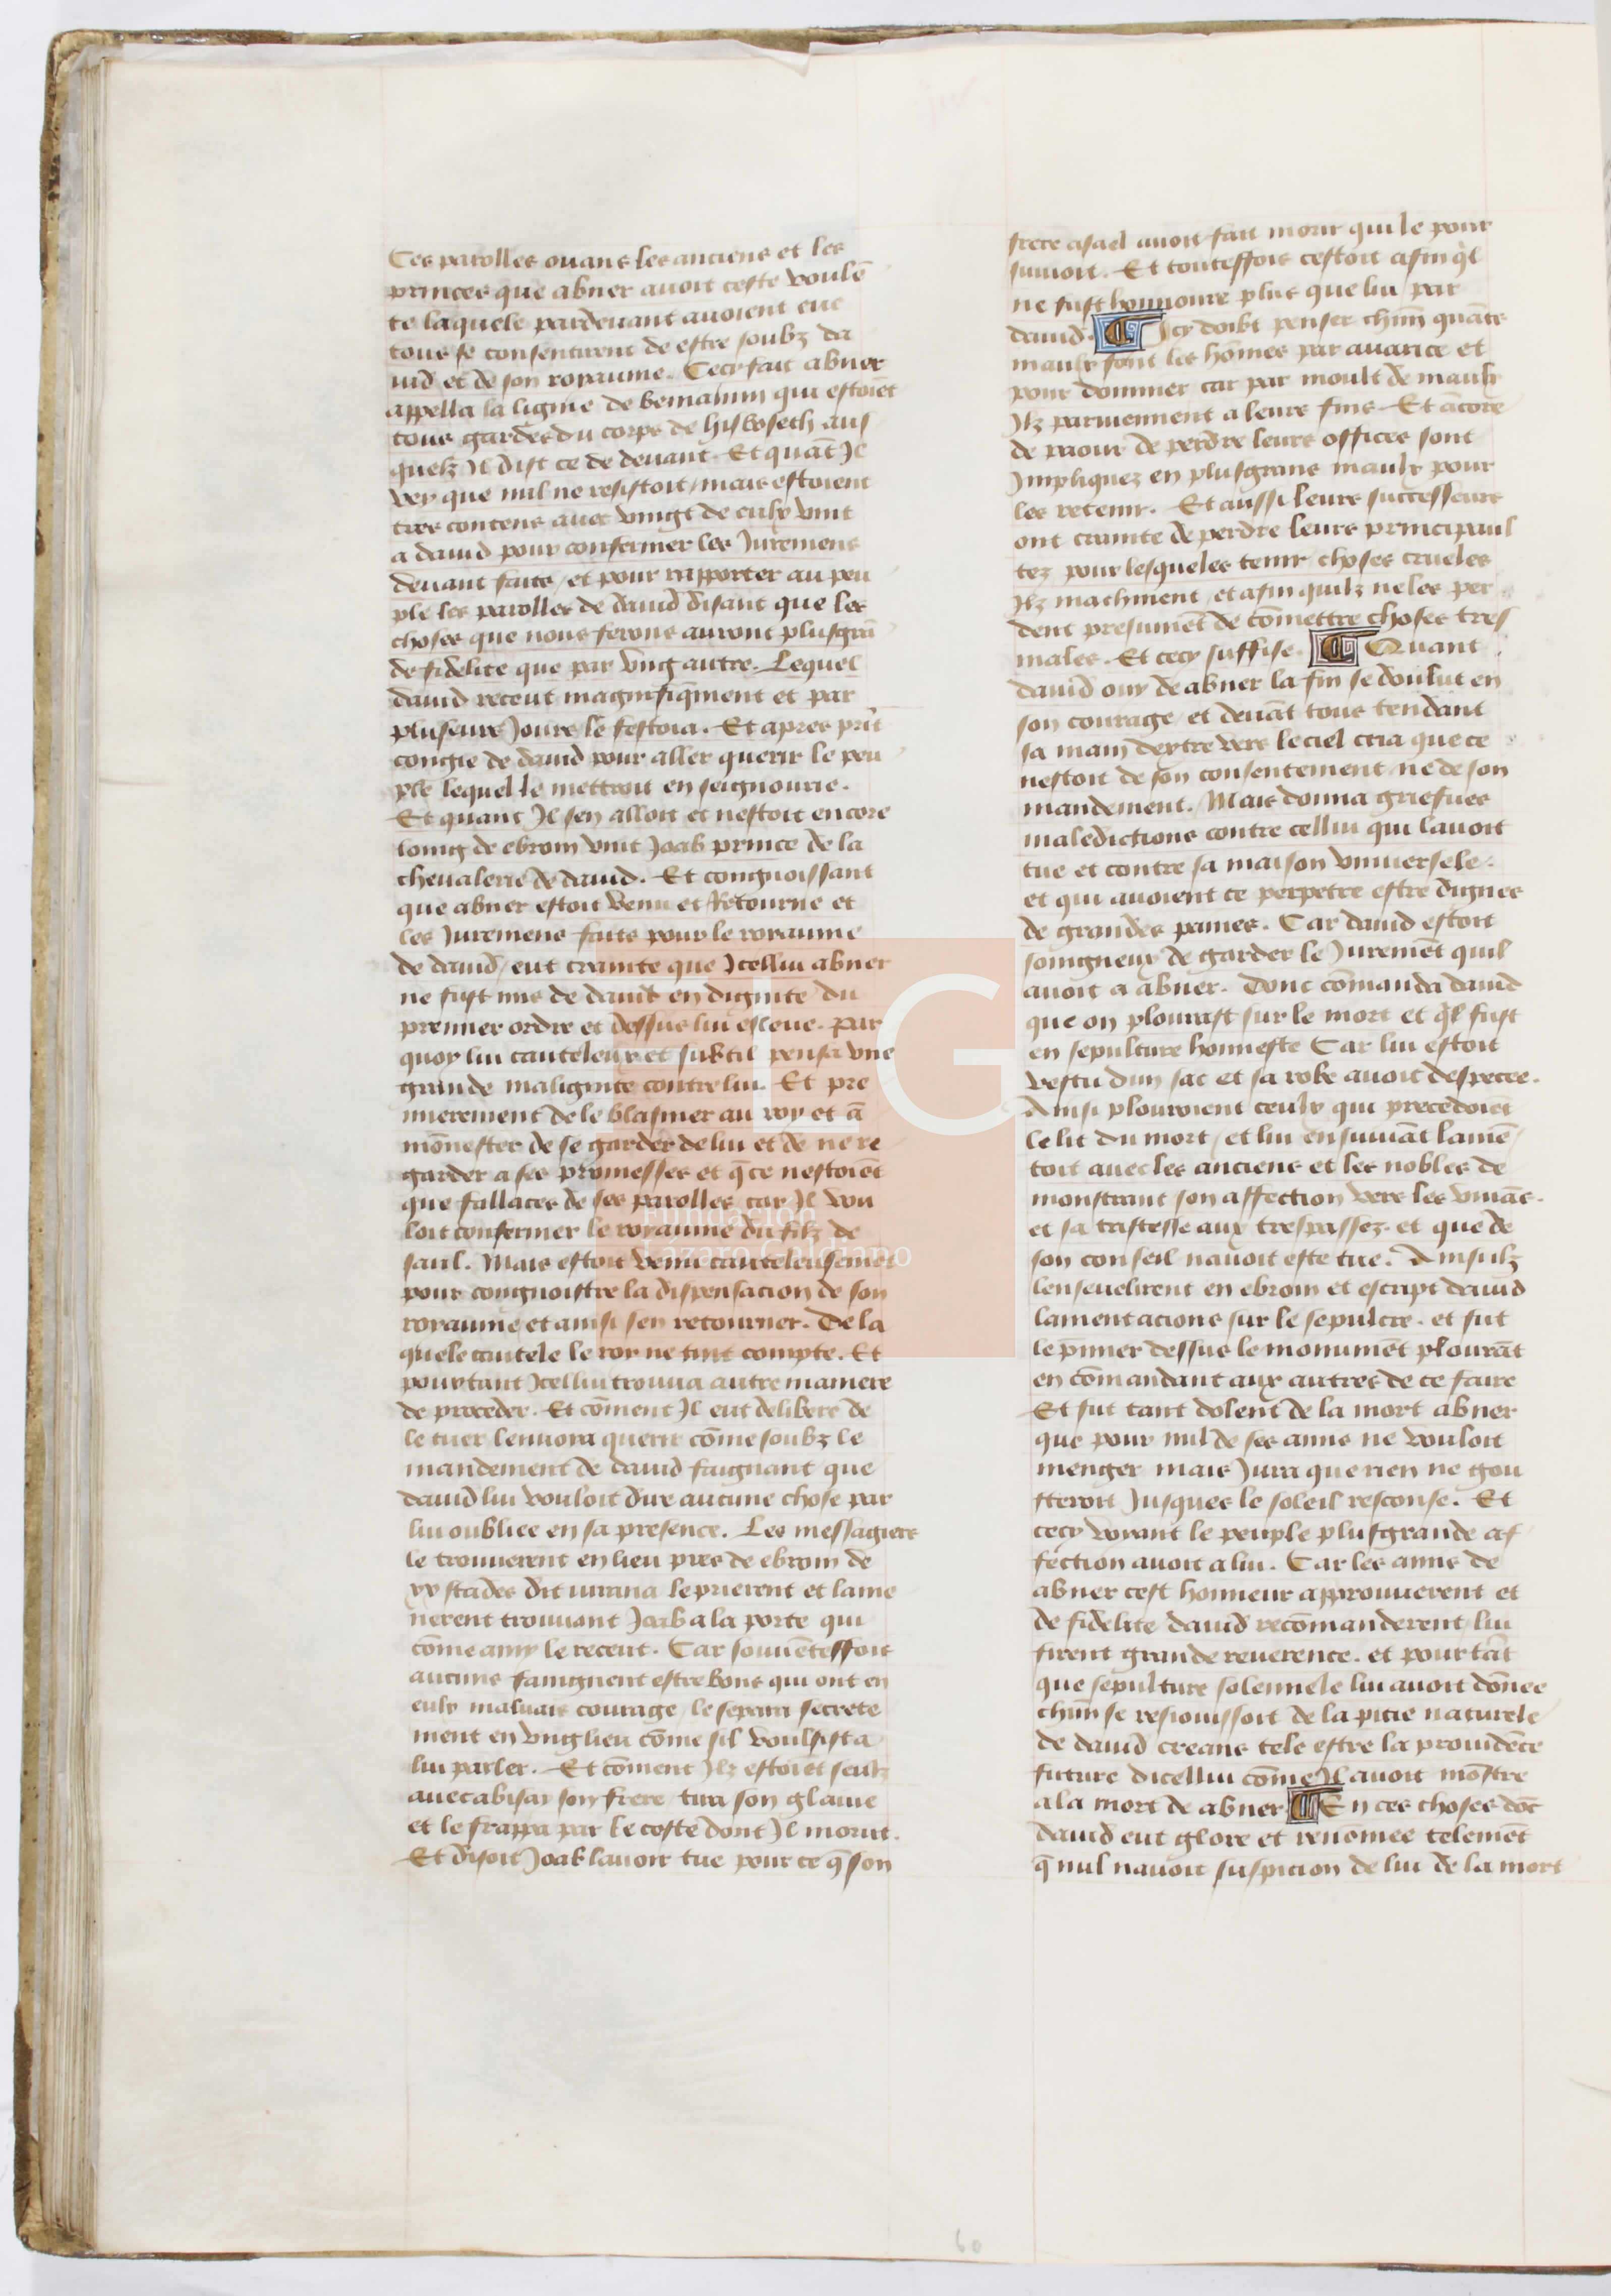 Ces parolles ouans les anciens et les
princes que abner auoit ceste voulē
te laquele pardeuant auoient eue
tous se consentirent de estre soubz da
uid et de son royaume. Cecy fait abner
appella la lignie de beniamin qui estoiēt
tous gardes du corps de hisboseth aus
quelz Il dist ce de deuant. Et quāt Il
vey que nul ne resistoit / mais estoient
tres contens auec vingt de eulx vint
a dauid pour confermer les Juremens
deuant fais / et pour rapporter au peu
ple les parolles de dauid disant que les
choses que nous ferons auront plusgrā
de fidelite que par vng autre. Lequel
dauid receut magnifiq̄ment et par
pluseurs Jours le festoia. Et apres prīt
congie de dauid pour aller querir le peu
ple lequel le mettroit en seignourie.
Et quant Il sen alloit et nestoit encore
loing de ebrom vint Joab prince de la
cheualerie de dauid. Et congnoissant
que abner estoit venu et Retourne et
les Juremens fais pour le royaume
de dauid / eut crainte que Icellui abner
ne fust mis de dauid en dignite du
premier ordre et dessus lui esleue. par
quoy lui cauteleux et subtil pensa vne
grande malignite contre lui. Et pre
mierement de le blasmer au roy et ā
mōnester de se garder de lui et de ne re
garder a ses promesses et q̄ ce nestoiēt
que fallaces de ses parolles car Il vou
loit confermer le royaume du filz de
saul. Mais estoit venu cauteleusemēt
pour congnoistre la dispensacion de son
royaume et ainsi sen retourner. De la
quele cautele le roy ne tint compte. Et
pourtant Icellui trouua autre maniere
de proceder. Et cōment Il eut delibere de
le tuer lenuoya querir cōme soubz le
mandement de dauid faignant que
dauid lui vouloit dire aucune chose par
lui oubliee en sa presence. Les messagiers
le trouuerent en lieu pres de ebrom de
xx stades dit sirana le prierent et lame
nerent trouuant Joab a la porte qui
cōme amy le receut. Car souuēteffois
aucuns faingnent estre bons qui ont en
eulx maluais courage / le separa secrete
ment en vng lieu cōme sil voulsist a
lui parler. Et cōment Ilz estoiēt seulz
auec abisay son frere tira son glaiue
et le frappa par le coste dont Il morut.
Et disoit Joab lauoir tue pour ce q̄ son
frere asael auoit fait morir qui le pour
suiuoit. Et touteffois cestoit afin q̄l
ne fust honnoure plus que lui par
dauid. Icy doibt penser chūn quāts
maulx font les hōmes par auarice et
pour dominer car par moult de maulx
Ilz paruiennent a leurs fins. Et ācore
de paour de perdre leurs offices sont
Impliquez en plusgrans maulx pour
les retenir. Et aussi leurs successeurs
ont crainte de perdre leurs principaul
tez pour lesqueles tenir choses crueles
Ilz machinent / et afin quilz ne les per
dent presumēt de cōmettre choses tres
males. Et cecy suffise. Quant
dauid ouy de abner la fin se doulut en
son courage / et deuāt tous tendant
sa main dextre vers le ciel cria que ce
nestoit de son consentement / ne de son
mandement. Mais donna griefues
maledictions contre cellui qui lauoit
tue et contre sa maison vniuersele.
et qui auoient ce perpetre estre dignes
de grandes paines. Car dauid estoit
soingneux de garder le Juremēt quil
auoit a abner. Donc cōmanda dauid
que on plourast sur le mort et q̄l fust
en sepulture honneste Car lui estoit
vestu dun sac et sa robe auoit despecee.
Ainsi plouroient ceulx qui precedoiēt
le lit du mort / et lui ensuiuāt lamē
toit auec les anciens et les nobles de
monstrant son affection vers les viuās.
et sa tristesse aux trespassez. et que de
son conseil nauoit este tue. Ainsi Ilz
lenseuelirent en ebrom et escript dauid
lamentacions sur le sepulcre. et fut
le p̄mier dessus le monumēt plourāt
en cōmandant aux autres de ce faire
Et fut tant dolent de la mort abner
que pour nul de ses amis ne vouloit
menger mais Jura que rien ne gou
steroit Jusques le soleil resconse. Et
cecy voyant le peuple plusgrande af
fection auoit a lui. Car les amis de
abner cest honneur approuuerent et
de fidelite dauid recōmanderent / lui
firent grande reuerence. et pourtāt
que sepulture solennele lui auoit dōnee
chūn se resiouissoit de la pitie naturele
de dauid creans tele estre la prouidēce
future dicellui cōme Il auoit mōstre
a la mort de abner. En ces choses dōc
dauid eut glore et renōmee telemēt
q̄ nul nauoit suspicion de lui de la mort
60
LG
Fundación
Lázaro Galdiano